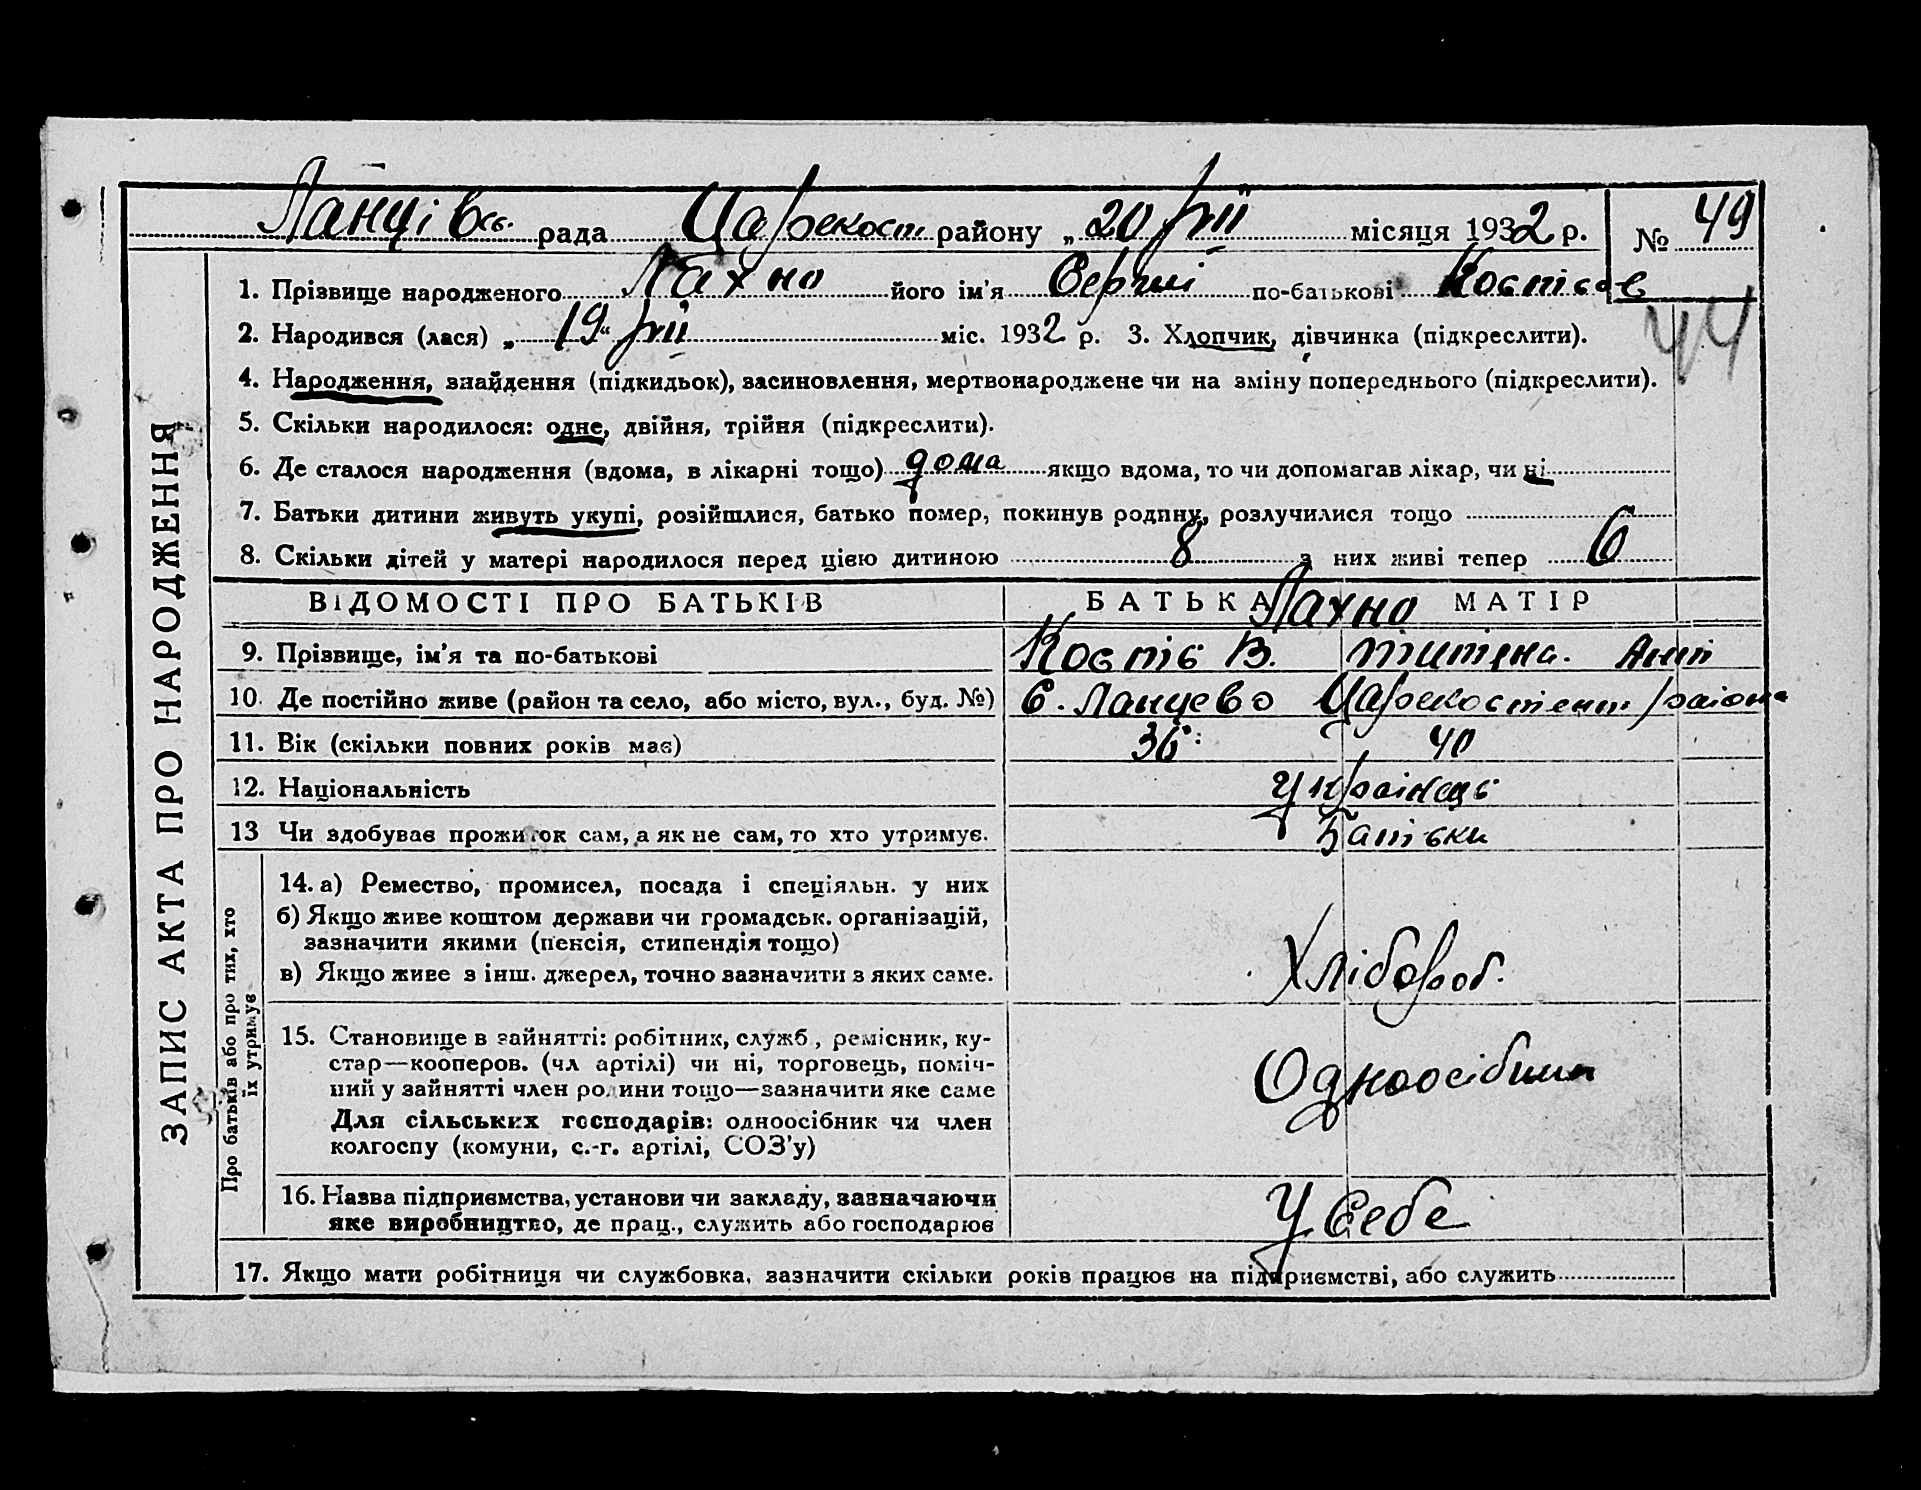 Ланцівсь. рада Царекост району „ 20 " місяця 1932 р. № 49
1. Прізвище народженого Лахно його ім'я Сергиі по-батькові Костісов
2. Народився (лася) „ 19 " міс. 1932 р. 3. Хлопчик, дівчинка (підкреслити).
44
4. Народження, знайдення (підкидьок), засиновлення, мертвонароджене чи на зміну попереднього (підкреслити).
5. Скільки народилося: одне, двійня, трійня (підкреслити).
6. Де сталося народження (вдома, в лікарні тощо) дома якщо вдома, то чи допомагав лікар, чи ні
7. Батьки дитини живуть укупі, розійшлися, батько помер, покинув родину, розлучилися тощо
8. Скільки дітей у матері народилося перед цією дитиною 8 з них живі тепер 6
ВІДОМОСТІ ПРО БАТЬКІВ БАТЬКА Лахно МАТІР
9. Прізвище, ім'я та по-батькові Костіс В. Титяна.
10. Де постійно живе (район та село, або місто, вул., буд. №) С. Ланцево Царекостент раіона
11. Вік (скільки повних років має) 36 40
12. Національність Украінець
13 Чи здобуває прожиток сам, а як не сам, то хто утримує. Батівки
ЗАПИС АКТА ПРО НАРОДЖЕННЯ
Про батьків або про тих, хто
їх утримує
14. а) Ремество, промисел, посада і спеціяльн. у них
б) Якщо живе коштом держави чи громадськ. організацій,
зазначити якими (пенсія, стипендія тощо)
в) Якщо живе з інш. джерел, точно зазначити з яких саме.
Хлібороб.
15. Становище в зайнятті: робітник, служб., ремісник, ку-
стар—кооперов. (чл артілі) чи ні, торговець, поміч-
ний у зайнятті член родини тощо—зазначити яке саме
Для сільських господарів: одноосібник чи член
колгоспу (комуни, с.-г. артілі, СОЗ'у)
Одноосібник
16. Назва підприємства, установи чи закладу, зазначаючи
яке виробництво, де прац., служить або господарює
У Себе
17. Якщо мати робітниця чи службовка, зазначити скільки років працює на підприємстві, або служить